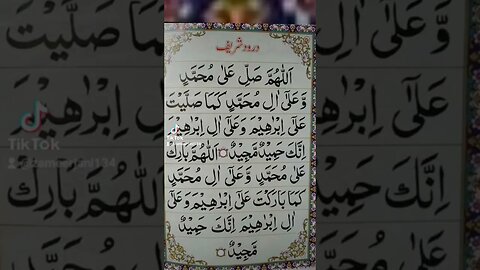 درود شریف
اَللّٰهُمَّ صَلِّ عَلٰی مُحَمَّدٍ
وَّ عَلٰٓی اٰلِ مُحَمَّدٍ کَمَا صَلَّیْتَ
عَلٰٓی اِبْرٰهِیْمَ وَعَلٰٓی اٰلِ اِبْرٰهِیْمَ
اِنَّكَ حَمِیْدٌ مَّجِیْدٌ اَللّٰهُمَّ بَارِكْ
عَلٰی مُحَمَّدٍ وَّ عَلٰٓی اٰلِ مُحَمَّدٍ
کَمَا بَارَکْتَ عَلٰٓی اِبْرٰهِیْمَ وَعَلٰٓی
اٰلِ اِبْرٰهِیْمَ اِنَّكَ حَمِیْدٌ
مَّجِیْدٌ
TikTok